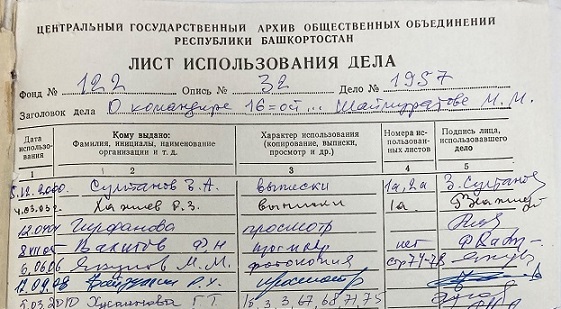 ЦЕНТРАЛЬНЫЙ ГОСУДАРСТВЕННЫЙ АРХИВ ОБЩЕСТВЕННЫХ ОБЪЕДИНЕНИЙ
РЕСПУБЛИКИ БАШКОРТОСТАН
ЛИСТ ИСПОЛЬЗОВАНИЯ ДЕЛА
Фонд № 122 Опись № 32 Дело № 1957
Заголовок дела О командире 16=ой ... Шаймуратове М. М.
Дата использования Кому выдано: Фамилия, инициалы, наименование организации и т. д. Характер использования (копирование, выписки, просмотр и др.) Номера использованных листов Подпись лица, использовавшего дело
1 2 3 4 5
Султанов З. А. выписки 1а, 2а З. Султанов
4.03.03 Р. З. выписки 1а
Гирфанова просмотр
Вахитов Ф Н просмотр нет
6.06.06 М. М. фотокопия стр 74-78
17.09.08 Р. Х. просмотр
5.03.2010 Хусаинова Г. Т. 3, 67, 68, 71, 75